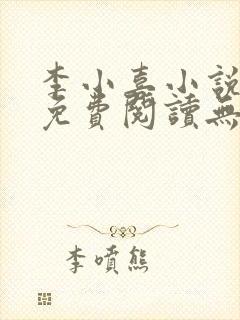 李小嘉小說
免費閱讀無
李噴熊